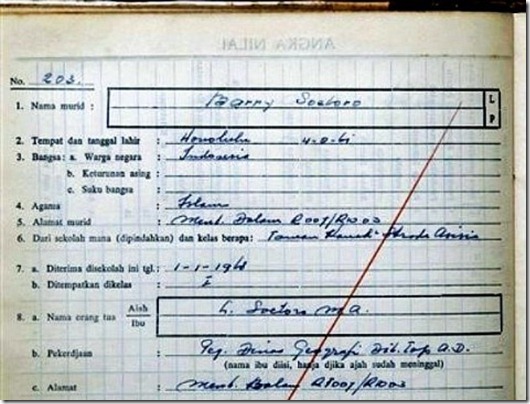 ANGKA NILAI
No. 203.
1. Nama murid : Barry Soetoro L
P
2. Tempat dan tanggal lahir : Honolulu 4-8-61
3. Bangsa: a. Warga negara : Indonesia
b. Keturunan asing :
c. Suku bangsa :
4. Agama : Islam
5. Alamat murid : Ment. Dalam R007/R1003
6. Dari sekolah mana (dipindahkan) dan kelas berapa: Taman Strada Asisia
7. a. Diterima disekolah ini tgl.: 1-1-1968
b. Ditempatkan dikelas : I
8. a. Nama orang tua Ajah L. Soetoro M.A.
Ibu
b. Pekerdjaan : Peg. Dinas Geografi Dit. Top. A.D.
(nama ibu diisi, hanja djika ajah sudah meninggal)
c. Alamat : Ment. Dalam R007/R1003